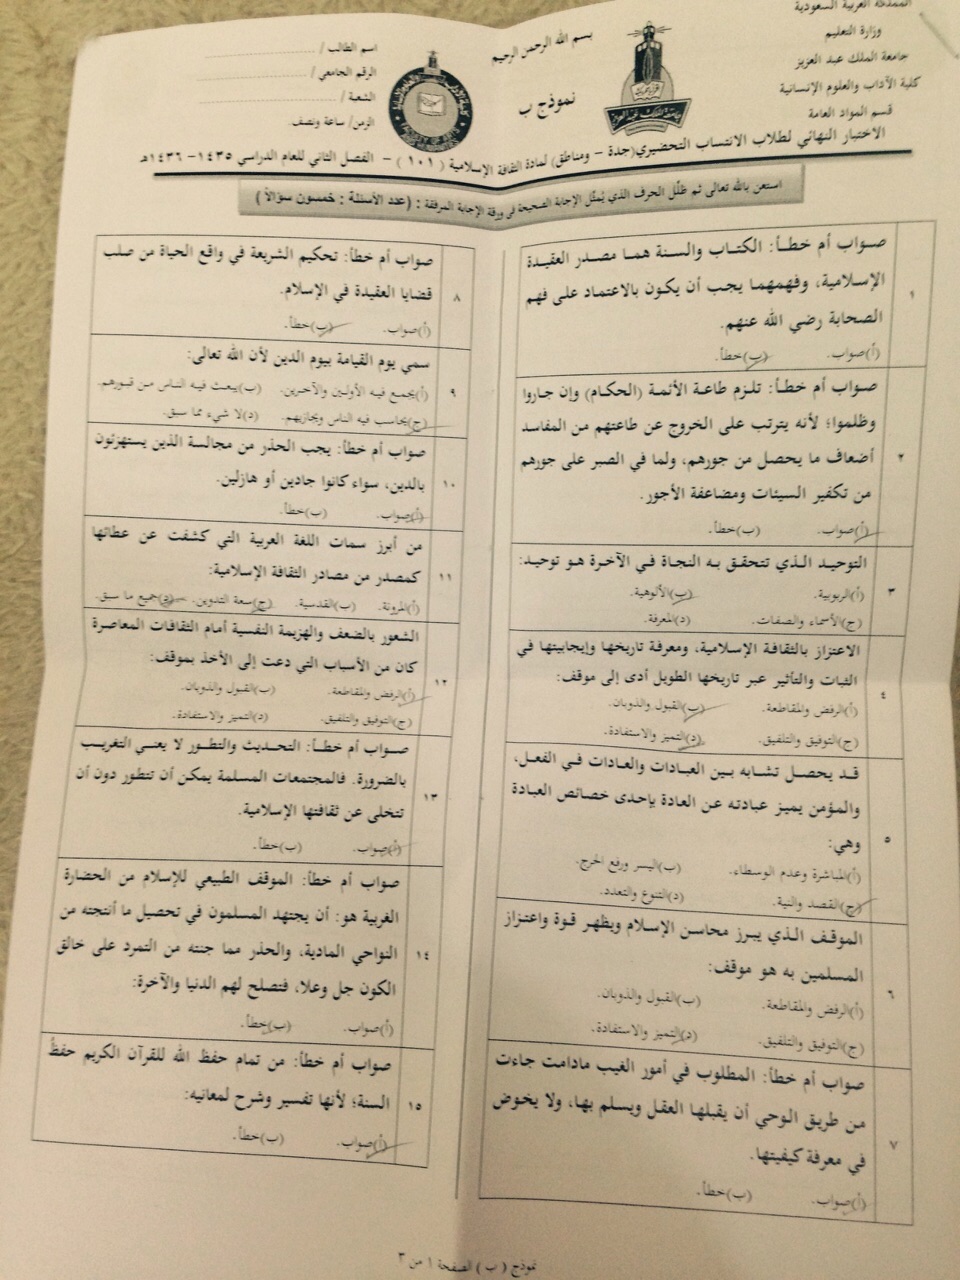 المملكة العربية السعودية
وزارة التعليم
جامعة الملك عبد العزيز
كلية الآداب والعلوم الإنسانية
قسم المواد العامة
بسم الله الرحمن الرحيم
نموذج ب
اسم الطالب /
الرقم الجامعي /
الشعبة /
الزمن/ ساعة ونصف.
الاختبار النهائي لطلاب الانتساب التحضيري(جدة - ومناطق) لمادة الثقافة الإسلامية (١٠١) - الفصل الثاني للعام الدراسي ١٤٣٥- ١٤٣٦هـ
استعن بالله تعالى ثم ظلّل الحرف الذي يُمثّل الإجابة الصحيحة في ورقة الإجابة المرفقة : (عدد الأسئلة : خمسون سؤالاً)
١
صواب أم خطأ: الكتاب والسنة هما مصدر العقيدة
الإسلامية، وفهمهما يجب أن يكون بالاعتماد على فهم
الصحابة رضي الله عنهم.
(أ)صواب. (ب)خطأ.
٢
صواب أم خطأ: تلزم طاعة الأئمة (الحكام) وإن جاروا
وظلموا؛ لأنه يترتب على الخروج عن طاعتهم من المفاسد
أضعاف ما يحصل من جورهم، ولما في الصبر على جورهم
من تكفير السيئات ومضاعفة الأجور.
(أ)صواب. (ب)خطأ.
٣
التوحيد الذي تتحقق به النجاة في الآخرة هو توحيد:
(أ)الربوبية. (ب)الألوهية.
(ج)الأسماء والصفات. (د)المعرفة.
٤
الاعتزاز بالثقافة الإسلامية، ومعرفة تاريخها وإيجابيتها في
الثبات والتأثير عبر تاريخها الطويل أدى إلى موقف:
(أ)الرفض والمقاطعة. (ب)القبول والذوبان.
(ج)التوفيق والتلفيق. (د)التميز والاستفادة.
٥
قد يحصل تشابه بين العبادات والعادات في الفعل،
والمؤمن يميز عبادته عن العادة بإحدى خصائص العبادة
وهي:
(أ)المباشرة وعدم الوسطاء. (ب)اليسر ورفع الحرج.
(ج)القصد والنية. (د)التنوع والتعدد.
٦
الموقف الذي يبرز محاسن الإسلام ويظهر قوة واعتزاز
المسلمين به هو موقف:
(أ)الرفض والمقاطعة. (ب)القبول والذوبان.
(ج)التوفيق والتلفيق. (د)التميز والاستفادة.
٧
صواب أم خطأ: المطلوب في أمور الغيب مادامت جاءت
من طريق الوحي أن يقبلها العقل ويسلم بها، ولا يخوض
في معرفة كيفيتها.
(أ)صواب. (ب)خطأ.
٨
صواب أم خطأ: تحكيم الشريعة في واقع الحياة من صلب
قضايا العقيدة في الإسلام.
(أ)صواب. (ب)خطأ.
٩
سمي يوم القيامة بيوم الدين لأن الله تعالى:
(أ)يجمع فيه الأولين والآخرين. (ب)يبعث فيه الناس من قبورهم.
(ج)يحاسب فيه الناس ويجازيهم. (د)لا شيء مما سبق.
١٠
صواب أم خطأ: يجب الحذر من مجالسة الذين يستهزئون
بالدين، سواء كانوا جادين أو هازلين.
(أ)صواب. (ب)خطأ.
١١
من أبرز سمات اللغة العربية التي كشفت عن عطائها
كمصدر من مصادر الثقافة الإسلامية:
(أ)المرونة. (ب)القدسية. (ج)سعة التدوين. (د)جميع ما سبق.
١٢
الشعور بالضعف والهزيمة النفسية أمام الثقافات المعاصرة
كان من الأسباب التي دعت إلى الأخذ بموقف:
(أ)الرفض والمقاطعة. (ب)القبول والذوبان.
(ج)التوفيق والتلفيق. (د)التميز والاستفادة.
١٣
صواب أم خطأ: التحديث والتطور لا يعني التغريب
بالضرورة. فالمجتمعات المسلمة يمكن أن تتطور دون أن
تتخلى عن ثقافتها الإسلامية.
(أ)صواب. (ب)خطأ.
١٤
صواب أم خطأ: الموقف الطبيعي للإسلام من الحضارة
الغربية هو: أن يجتهد المسلمون في تحصيل ما أنتجته من
النواحي المادية، والحذر مما جنته من التمرد على خالق
الكون جل وعلا، فتصلح لهم الدنيا والآخرة:
(أ)صواب. (ب)خطأ.
١٥
صواب أم خطأ: من تمام حفظ الله للقرآن الكريم حفظُ
السنة؛ لأنها تفسير وشرح لمعانيه:
(أ)صواب. (ب)خطأ.
نموذج ( ب ) الصفحة ١ من ٣